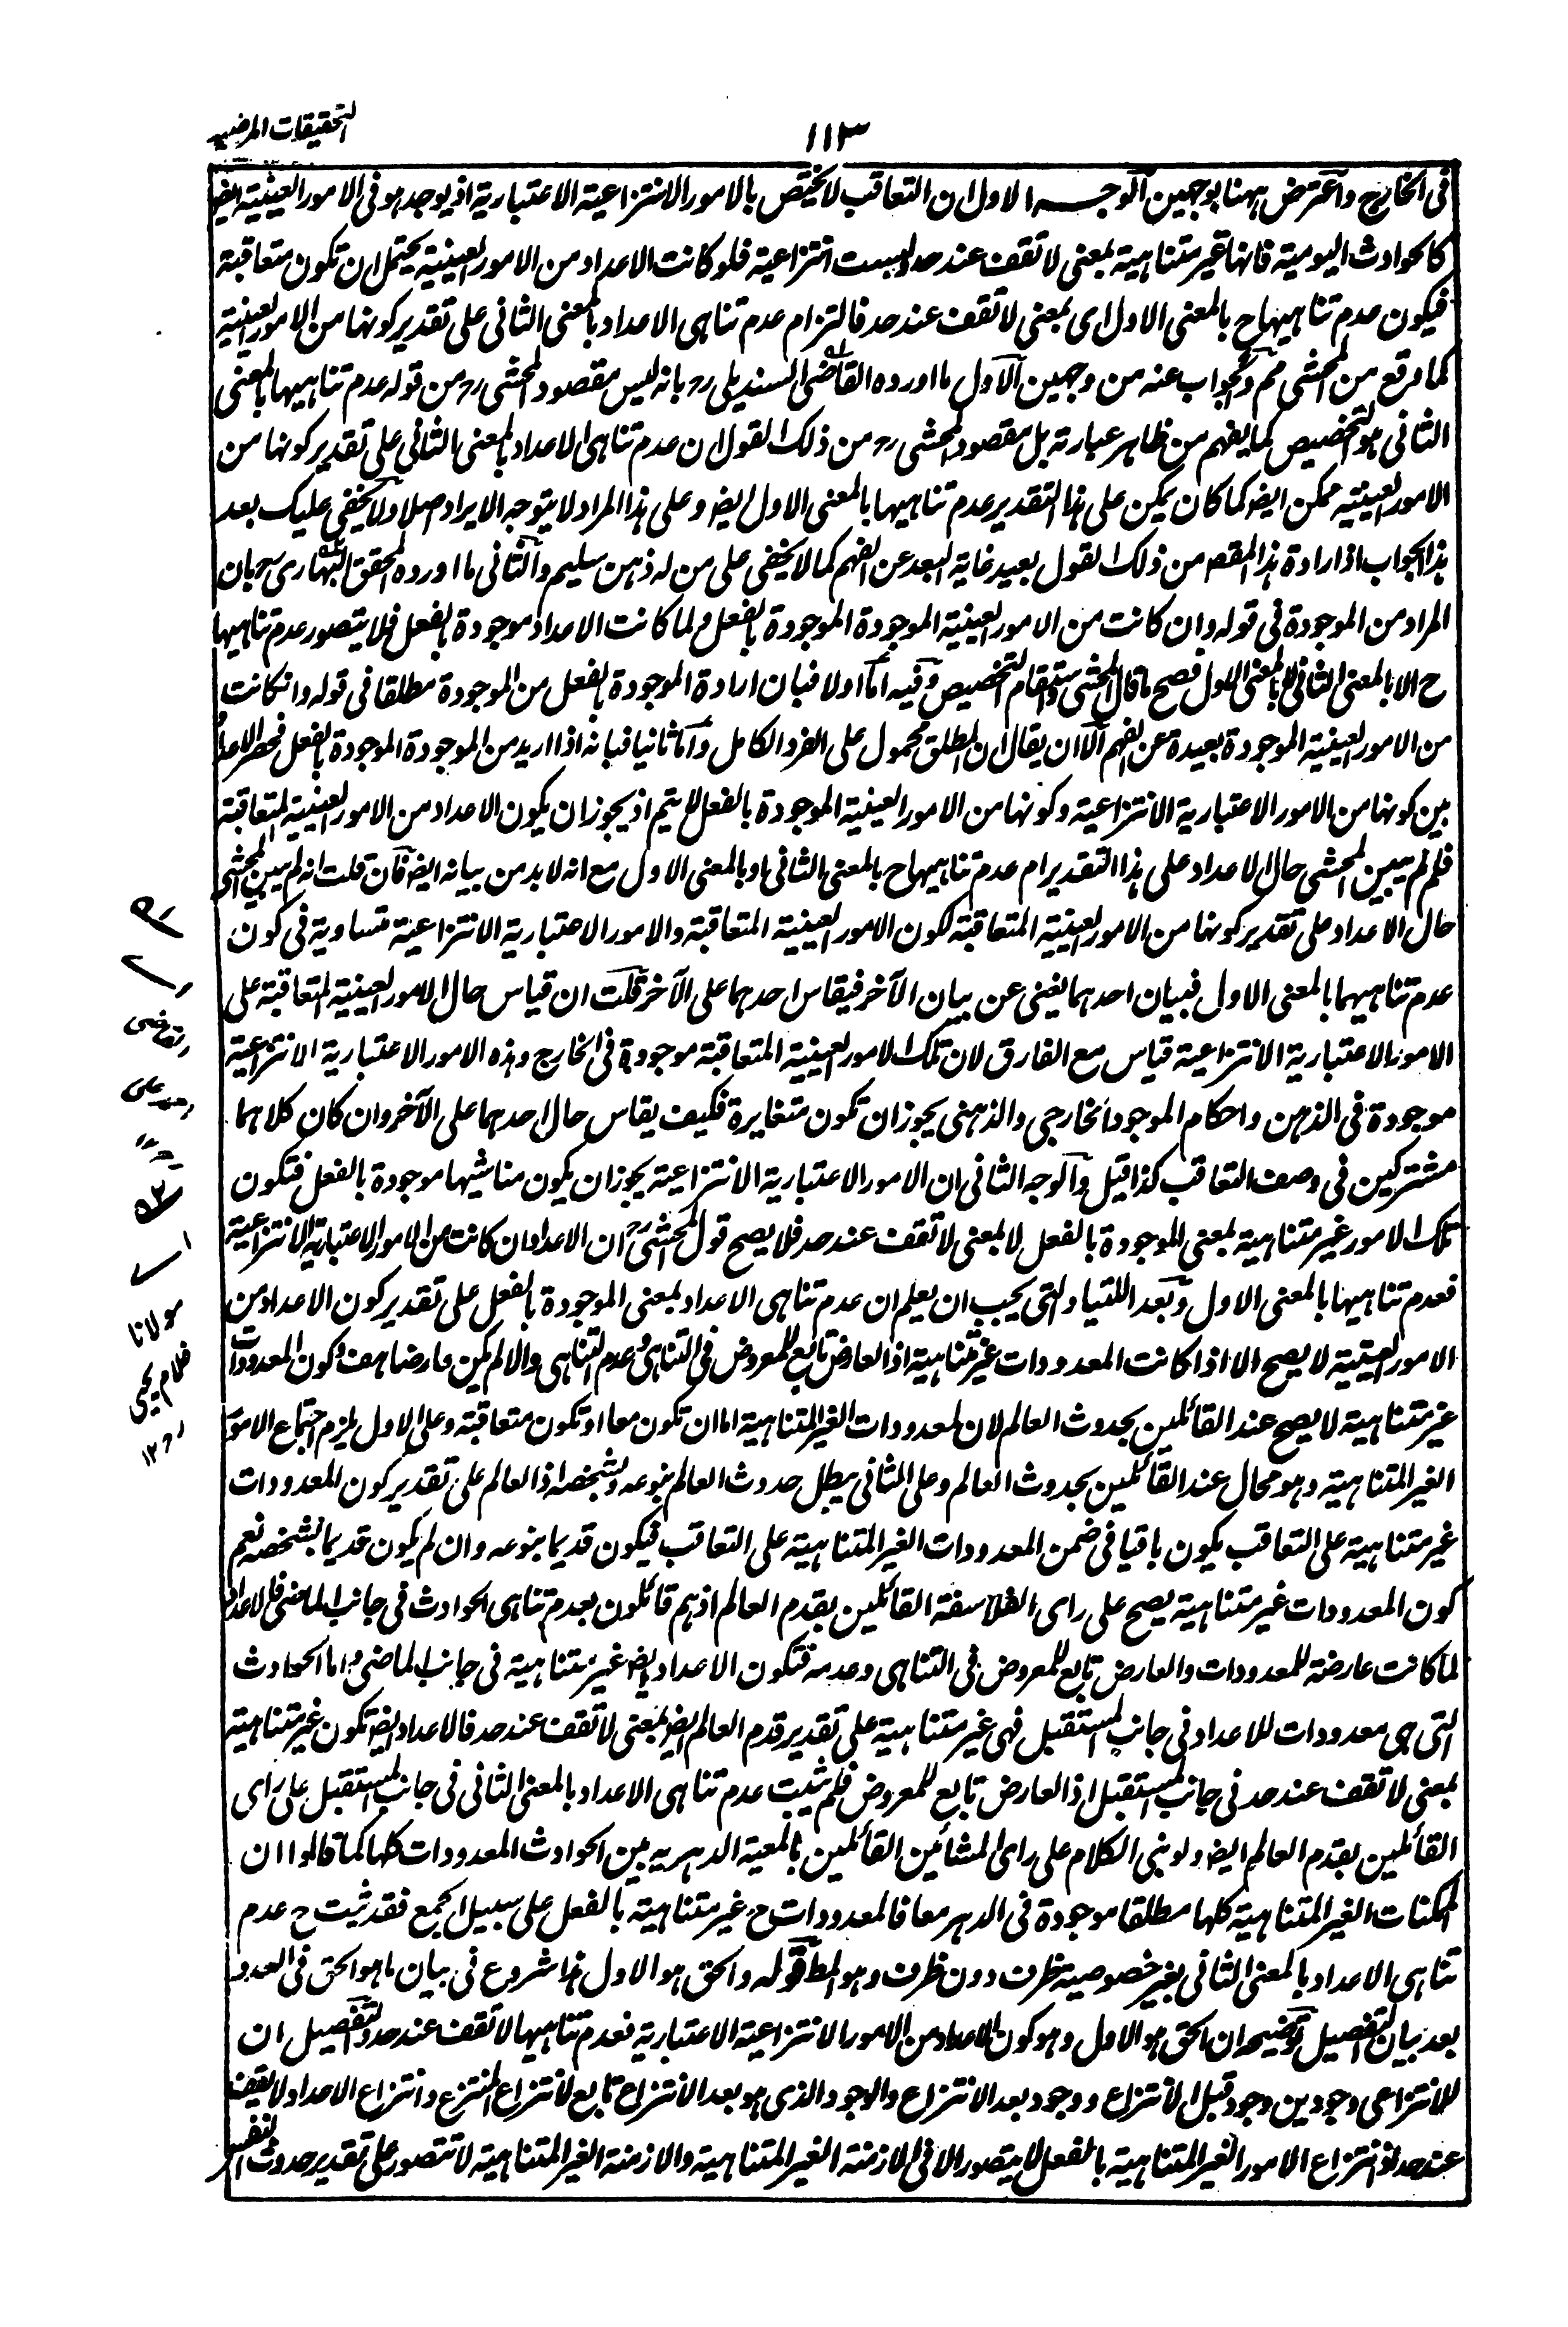 التحقيقات المرضيه
١١٣
فى الخارج واعترض ههنا بوجهين الوجه الاول ان التعاقب لا يختص بالامور الانتزاعية الاعتبارية اذ يوجد هو فى الامور العينية ايضا
كالحوادث اليومية فانها غير متناهية بمعنى لا تقف عند حد وليست انتزاعية فلو كانت الاعداد من الامور العينية يحتمل ان تكون متعاقبة
فيكون عدم تناهيها ح بالمعنى الاول اى بمعنى لا تقف عند حد فالتزام عدم تناهى الاعداد بالمعنى الثانى على تقدير كونها من الامور العينية
كما وقع من المحشى مم والجواب عنه من وجهين الاول ما اورده القاضى السنديلى رح بانه ليس مقصود المحشى رح من قوله عدم تناهيها بالمعنى
الثانى هو التخصيص كما يفهم من ظاهر عبارته بل مقصود المحشى رح من ذلك القول ان عدم تناهى الاعداد بالمعنى الثانى على تقدير كونها من
الامور العينية ممكن ايضا كما كان يمكن على هذا التقدير عدم تناهيها بالمعنى الاول ايضا وعلى هذا المراد لا يتوجه الايراد اصلا ولا يخفى عليك بعد
هذا الجواب اذ ارادة هذا المقصد من ذلك القول بعيد غاية البعد عن الفهم كما لا يخفى على من له ذهن سليم والثانى ما اورده المحقق البهارى رح بان
المراد من الموجودة فى قوله وان كانت من الامور العينية الموجودة الموجودة بالفعل ولما كانت الاعداد موجودة بالفعل فلا يتصور عدم تناهيها
ح الا بالمعنى الثانى لا بالمعنى الاول فصح ما قال المحشى واستقام التخصيص وفيه اما اولا فبان ارادة الموجودة بالفعل من الموجودة مطلقا فى قوله وان كانت
من الامور العينية الموجودة بعيدة عن الفهم الا ان يقال ان المطلق محمول على الفرد الكامل واما ثانيا فبانه اذا اريد من الموجودة الموجودة بالفعل فحصر الاعداد
بين كونها من الامور الاعتبارية الانتزاعية وكونها من الامور العينية الموجودة بالفعل لا يتم اذ يجوز ان يكون الاعداد من الامور العينية المتعاقبة
فلم لم يبين المحشى حال الاعداد على هذا التقدير ام عدم تناهيها ح بالمعنى الثانى او بالمعنى الاول مع انه لا بد من بيانه ايضا فان قلت انه لم يبين المحشى
حال الاعداد على تقدير كونها من الامور العينية المتعاقبة لكون الامور العينية المتعاقبة والامور الاعتبارية الانتزاعية متساوية فى كون
عدم تناهيهما بالمعنى الاول فبيان احدهما يغنى عن بيان الآخر فيقاس احدهما على الآخر قلت ان قياس حال الامور العينية المتعاقبة على
الامور الاعتبارية الانتزاعية قياس مع الفارق لان تلك الامور العينية المتعاقبة موجودة فى الخارج وهذه الامور الاعتبارية الانتزاعية
موجودة فى الذهن واحكام الموجود الخارجى والذهنى يجوز ان تكون متغايرة فكيف يقاس حال احدهما على الآخر وان كان كلاهما
مشتركين فى وصف التعاقب كذا قيل والوجه الثانى ان الامور الاعتبارية الانتزاعية يجوز ان يكون مناشيها موجودة بالفعل فتكون
تلك الامور غير متناهية بمعنى الموجودة بالفعل لا بمعنى لا تقف عند حد فلا يصح قول المحشى رح ان الاعداد ان كانت من الامور الاعتبارية الانتزاعية
فعدم تناهيها بالمعنى الاول وبعد اللتيا والتى يجب ان يعلم ان عدم تناهى الاعداد بمعنى الموجودة بالفعل على تقدير كون الاعداد من
الامور العينية لا يصح الا اذا كانت المعدودات غير متناهية اذ العارض تابع للمعروض فى التناهى وعدم التناهى والا لم يكن عارضا هف وكون المعدودات
غير متناهية لا يصح عند القائلين بحدوث العالم لان المعدودات الغير المتناهية اما ان تكون معا او تكون متعاقبة وعلى الاول يلزم اجتماع الامور
الغير المتناهية وهو محال عند القائلين بحدوث العالم وعلى الثانى يبطل حدوث العالم بنوعه وشخصه اذ العالم على تقدير كون المعدودات
غير متناهية على التعاقب يكون باقيا فى ضمن المعدودات الغير المتناهية على التعاقب فيكون قديما بنوعه وان لم يكون قديما بشخصه نعم
كون المعدودات غير متناهية يصح على راى الفلاسفة القائلين بقدم العالم اذ هم قائلون بعدم تناهى الحوادث فى جانب الماضى فالاعداد
لما كانت عارضة للمعدودات والعارض تابع للمعروض فى التناهى وعدمه فتكون الاعداد ايضا غير متناهية فى جانب الماضى واما الحوادث
التى هى معدودات للاعداد فى جانب المستقبل فهى غير متناهية على تقدير قدم العالم ايضا بمعنى لا تقف عند حد فالاعداد ايضا تكون غير متناهية
بمعنى لا تقف عند حد فى جانب المستقبل اذ العارض تابع للمعروض فلم يثبت عدم تناهى الاعداد بالمعنى الثانى فى جانب المستقبل على راى
القائلين بقدم العالم ايضا ولو بنى الكلام على راى المشائين القائلين بالمعية الدهريه بين الحوادث المعدودات كلها كما قالوا ان
الممكنات الغير المتناهية كلها مطلقا موجودة فى الدهر معا فالمعدودات ح غير متناهية بالفعل على سبيل الجمع فقد ثبت ح عدم
تناهى الاعداد بالمعنى الثانى بغير خصوصية ظرف دون ظرف وهو المط قوله والحق هو الاول هذا شروع فى بيان ما هو الحق فى العدد
بعد بيان التفصيل توضيحه ان الحق هو الاول وهو كون الاعداد من الامور الانتزاعية الاعتبارية فعدم تناهيها لا تقف عند حد والتفصيل ان
للانتزاعى وجودين وجود قبل الانتزاع ووجود بعد الانتزاع والوجود الذى هو بعد الانتزاع تابع لانتزاع المنتزع وانتزاع الاعداد لا يقف
عند حد اذ انتزاع الامور الغير المتناهية بالفعل لا يتصور الا فى الازمنة الغير المتناهية والازمنة الغير المتناهية لا تتصور على تقدير حدوث النفس
مولانا
غلام يحيى
رح ١٢